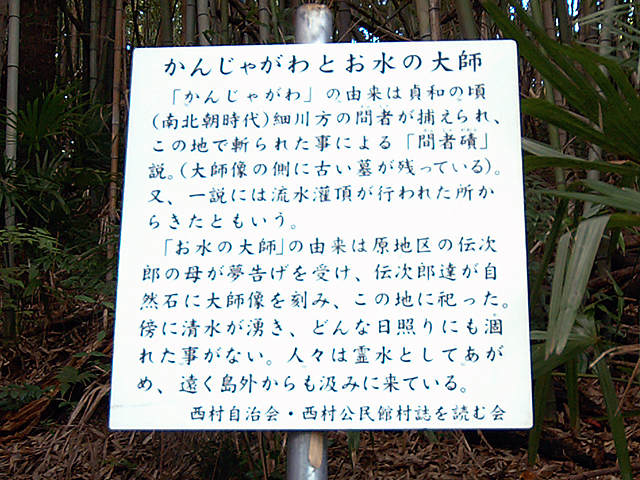 かんじゃがわとお水の大師
「かんじゃがわ」の由来は貞和の頃
(南北朝時代)細川方の間者が捕えられ、
この地で斬られた事による「間者磧」
説。(大師像の側に古い墓が残っている)。
又、一説には流水灌頂が行われた所か
らきたともいう。
「お水の大師」の由来は原地区の伝次
郎の母が夢告げを受け、伝次郎達が自
然石に大師像を刻み、この地に祀った。
傍に清水が湧き、どんな日照りにも涸
れた事がない。人々は霊水としてあが
め、遠く島外からも汲みに来ている。
西村自治会・西村公民館村誌を読む会